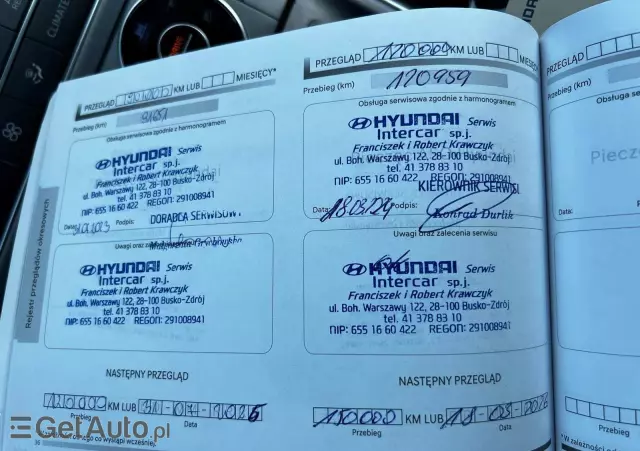 CLIMATE
PRZEGLĄD 90000 KM LUB MIESIĘCY*
Przebieg (km)
Obsługa serwisowa zgodnie z harmonogramem
HYUNDAI Serwis
Intercar sp.j.
Franciszek i Robert Krawczyk
ul. Boh. Warszawy 122, 28-100 Busko-Zdrój
tel. 41 378 83 10
NIP: 655 16 60 422 REGON: 291008941
DORADCA SERWISOWY
Data: Podpis:
Uwagi oraz zalecenia serwisu
HYUNDAI Serwis
Intercar sp.j.
Franciszek i Robert Krawczyk
ul. Boh. Warszawy 122, 28-100 Busko-Zdrój
tel. 41 378 83 10
NIP: 655 16 60 422 REGON: 291008941
NASTĘPNY PRZEGLĄD
120000 KM LUB 31-07-2025
Przebieg Data
36
Rejestr przeglądów okresowych
PRZEGLĄD 120000 KM LUB MIESIĘCY*
Przebieg (km) 120959
Obsługa serwisowa zgodnie z harmonogramem
HYUNDAI Serwis
Intercar sp.j.
Franciszek i Robert Krawczyk
ul. Boh. Warszawy 122, 28-100 Busko-Zdrój
tel. 41 378 83 10
NIP: 655 16 60 422 REGON: 291008941
KIEROWNIK SERWISU
Data: 18.03.24 Podpis: Konrad Durlik
Uwagi oraz zalecenia serwisu
HYUNDAI Serwis
Intercar sp.j.
Franciszek i Robert Krawczyk
ul. Boh. Warszawy 122, 28-100 Busko-Zdrój
tel. 41 378 83 10
NIP: 655 16 60 422 REGON: 291008941
NASTĘPNY PRZEGLĄD
150000 KM LUB 18-03-2026
Przebieg Data
PRZEGLĄD
Przebieg (km)
Obsługa
Piecz
Data:
Przebieg
* W zależności od
GetAuto.pl